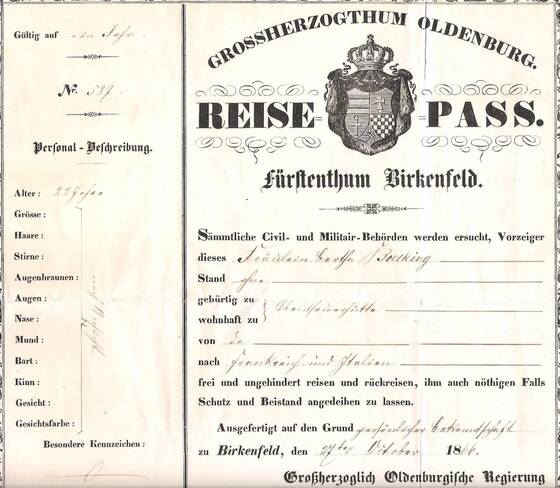 Gültig auf ein Jahr
No. 587.
Personal-Beschreibung.
Alter: 22 Jahre
Grösse:
Haare:
Stirne:
Augenbraunen:
Augen:
Nase:
Mund:
Bart:
Kinn:
Gesicht:
Gesichtsfarbe:
Besondere Kennzeichen:
GROSSHERZOGTHUM OLDENBURG.
REISE=PASS.
Fürstenthum Birkenfeld.
Sämmtliche Civil- und Militair-Behörden werden ersucht, Vorzeiger
dieses Fräulein Bertha Böcking
Stand ohne
gebürtig zu
wohnhaft zu
Abentheuerhütte
von da
nach Frankreich und Italien
frei und ungehindert reisen und rückreisen, ihm auch nöthigen Falls
Schutz und Beistand angedeihen zu lassen.
Ausgefertigt auf den Grund persönlicher Bekanntschaft
zu Birkenfeld, den 27ten October 1866.
Großherzoglich Oldenburgische Regierung